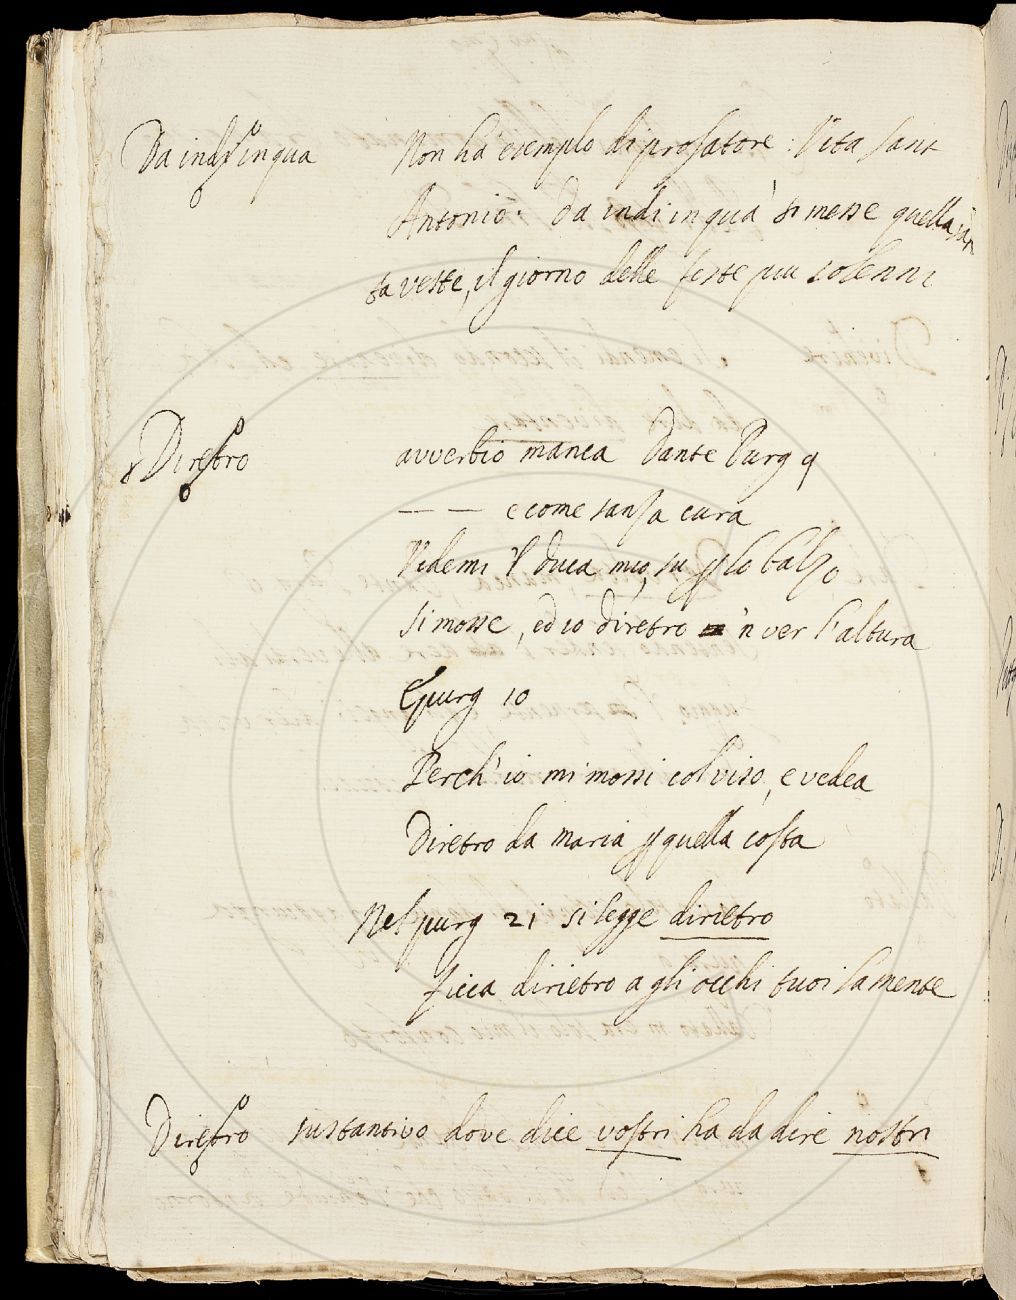 Da indi inqua Non ha esemplo di prosatore: Vita Sant
Antonio. Da indi in qua si messe quella san
ta veste, il giorno delle feste piu solenni
Diretro avverbio manca Dante Purg 9
— — e come sanza cura
Videmi 'l duca mio, su p lo balzo
si mosse, ed io diretro 'n ver l'altura
E purg 10
Perch' io mi mossi col viso, e vedea
Diretro da maria p quella costa
Nel purg 21 si legge dirietro
ficca dirietro a gli occhi tuoi la mente
Diretro sustantivo dove dice vostri ha da dire nostri